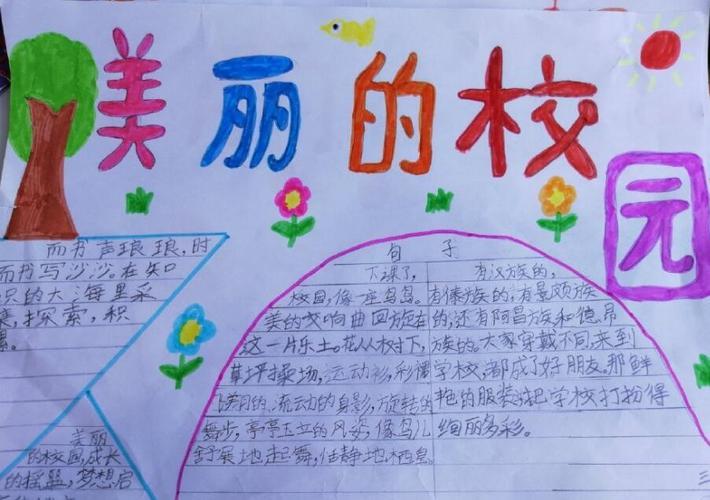 美丽的校园
而书声琅琅,时
而书写沙沙。在知
识的大海里采
集,探索,积
累。
美丽
的校园,成长
的摇篮,梦想启
句子
下课了,
校园,像一座鸟岛。
美的交响曲回旋在
这一片乐土。花丛树下,
草坪操场,运动衫,彩裙
满目的、流动的身影,旋转的
舞步,亭亭玉立的风姿,像鸟儿
舒展地起舞,恬静地栖息
有汉族的,
有傣族的,有景颇族
的,还有阿昌族和德昂
族的。大家穿戴不同来到
学校,都成了好朋友。那鲜
艳的服装,把学校打扮得
绚丽多彩。
三